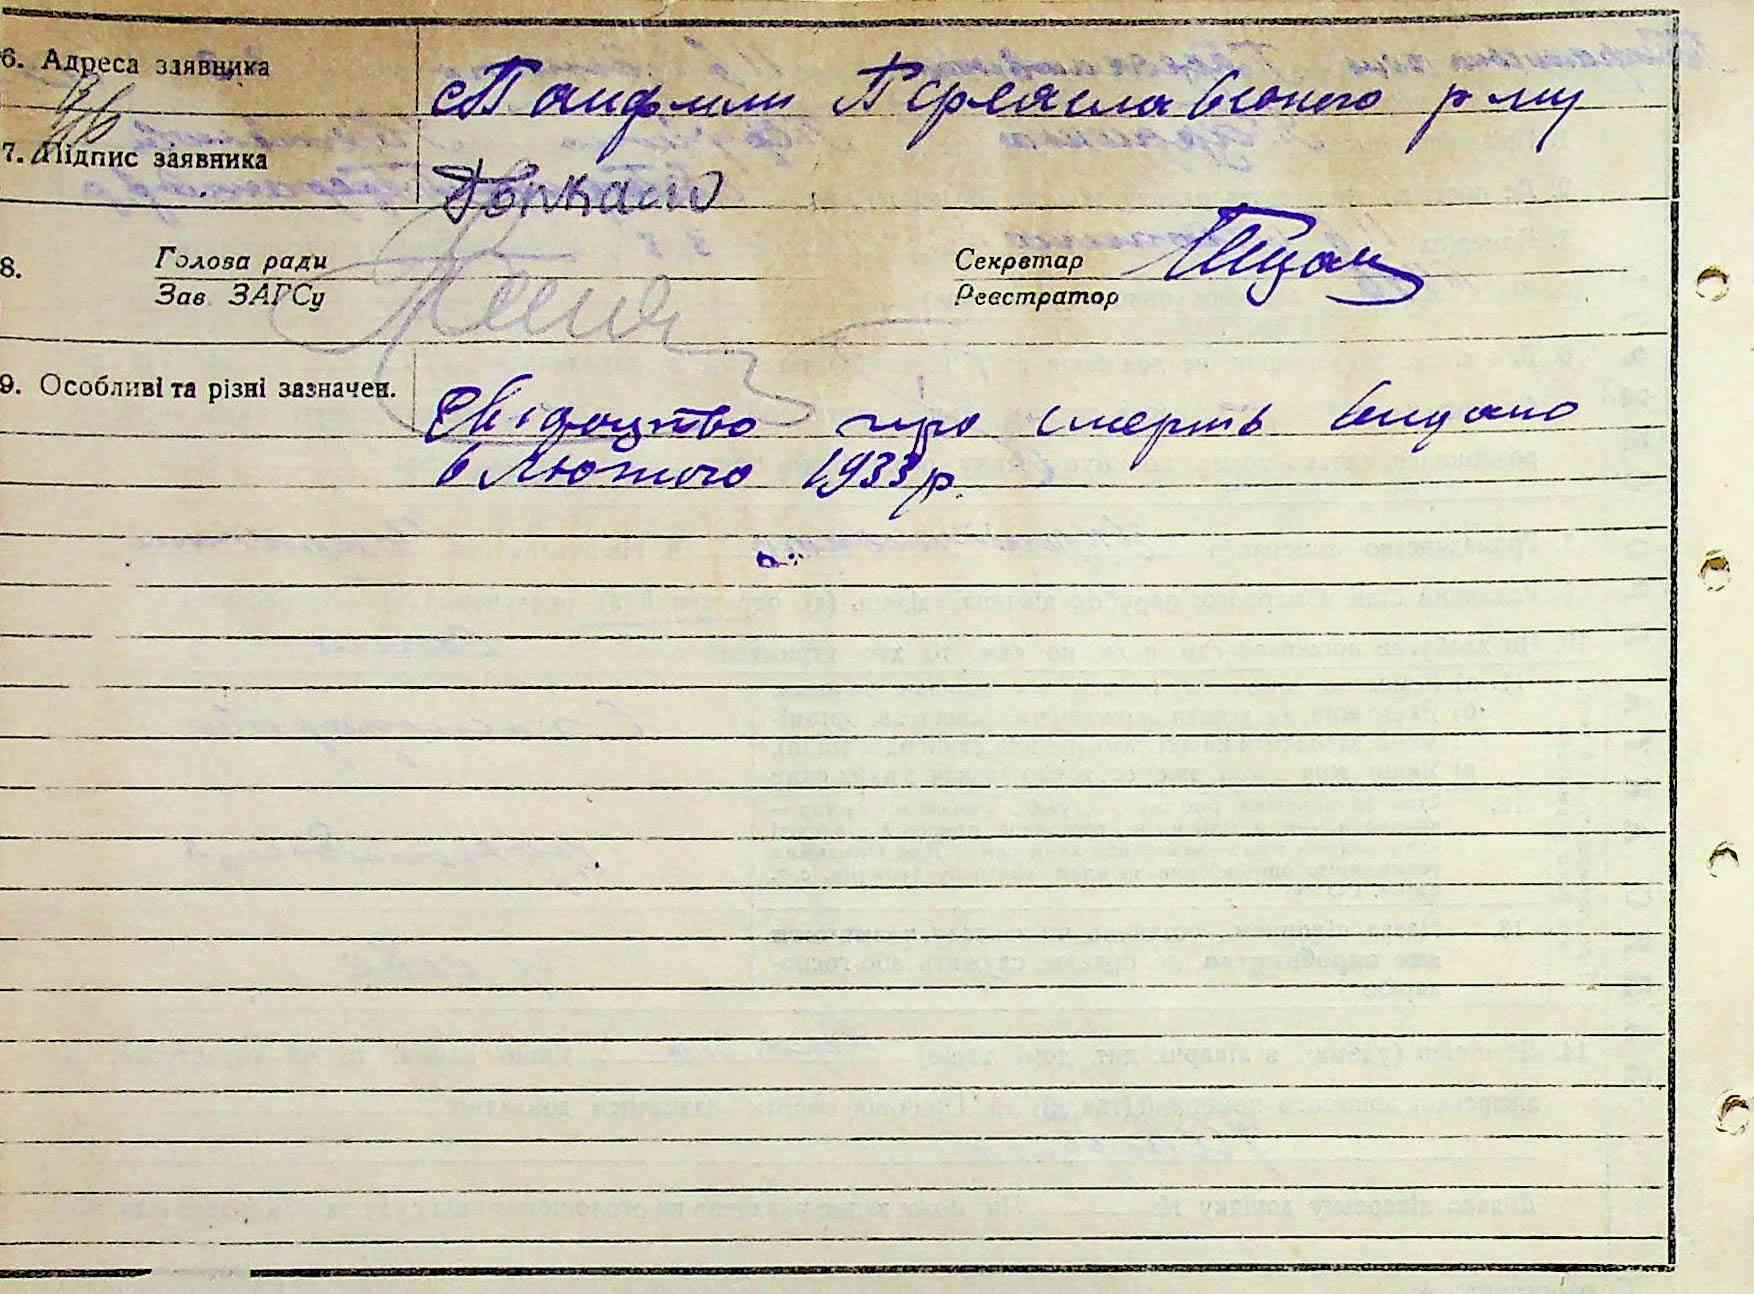 6. Адреса заявника с Панфили Переяславського р-ну
7. Підпис заявника
8. Голова ради Секретар
Зав. ЗАГСу Реєстратор
9. Особливі та різні зазначен. Свідоцтво про смерть видано
6 Лютого 1933 р.